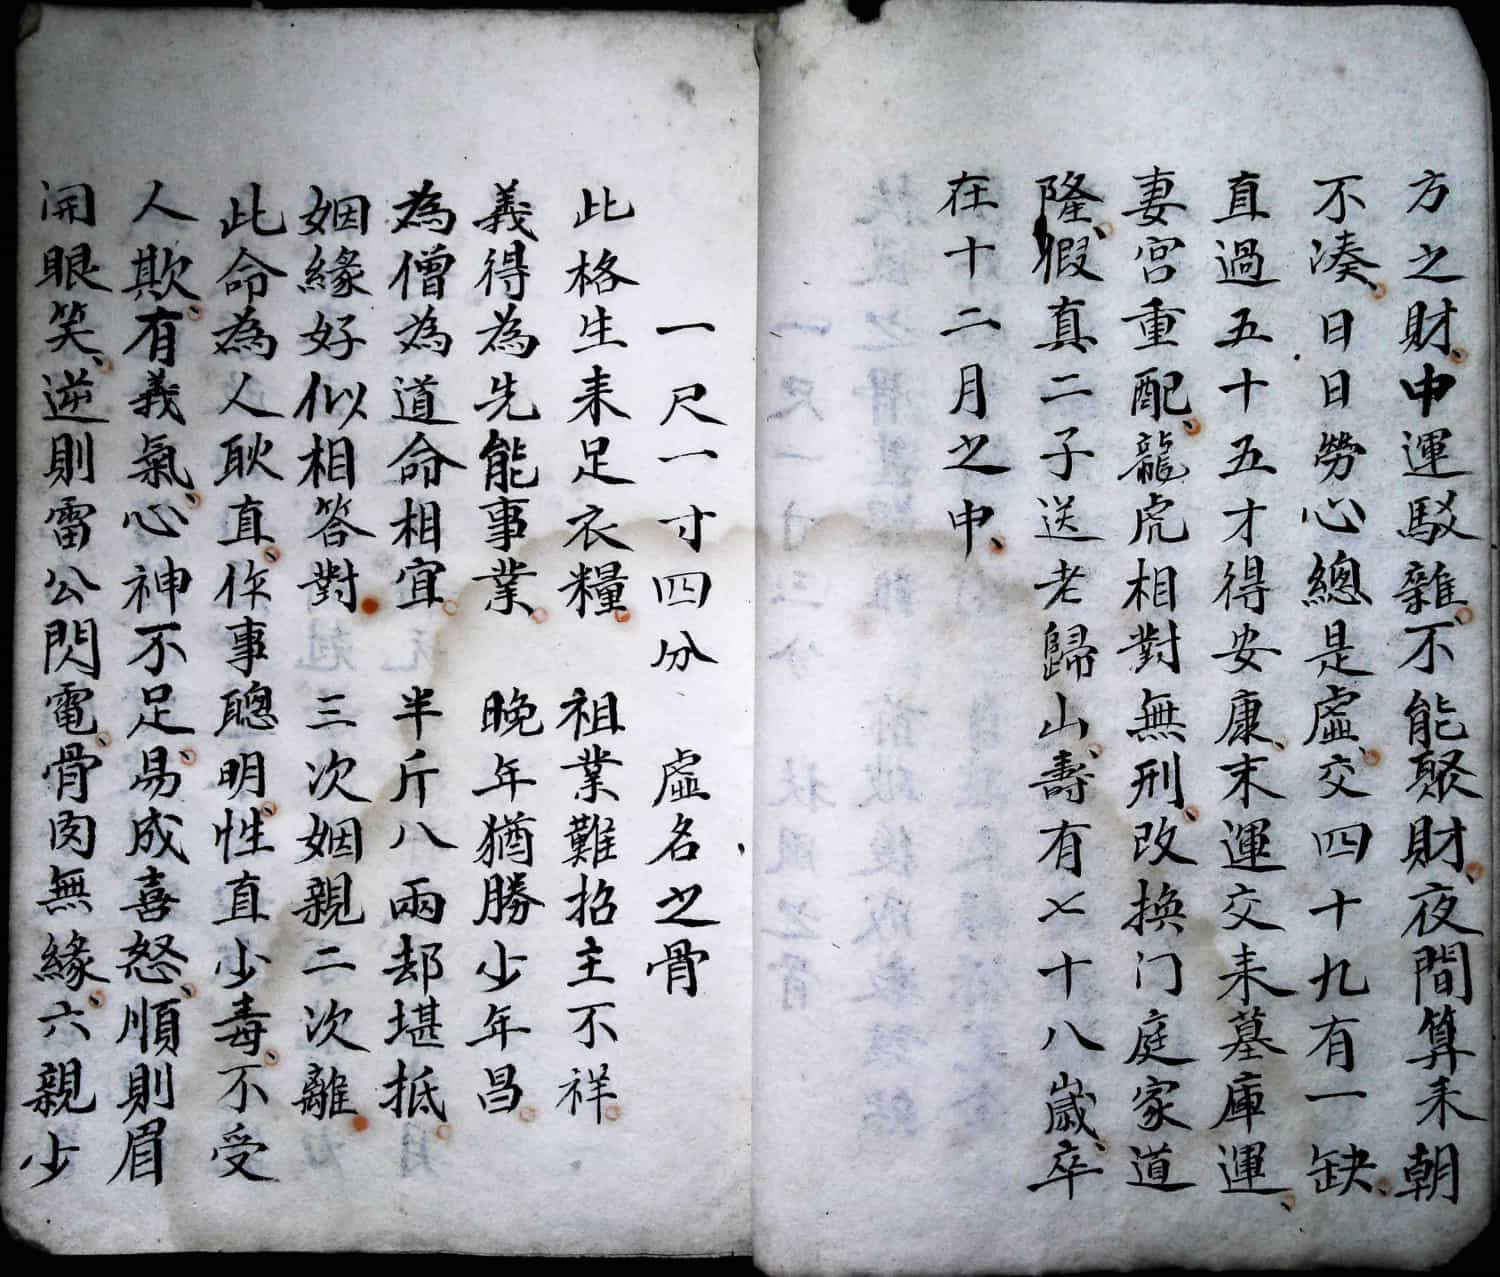 方之財、中運駁雜、不能聚財、夜間算来朝
不湊、日日勞心總是虛、交四十九有一缺、
直過五十五才得安康、末運交来墓庫運、
妻宮重配、龍虎相對無刑、改換门庭家道
隆、假真二子送老歸山、壽有七十八歲、卒
在十二月之中、
一尺一寸四分 虛名之骨
此格生来足衣糧 祖業難招主不祥
義得為先能事業 晚年猶勝少年昌
為僧為道命相宜 半斤八兩却堪抵
姻緣好似相答對 三次姻親二次離
此命為人耿直、作事聰明、性直少毒、不受
人欺、有義氣、心神不足、易成喜怒、順則眉
開眼笑、逆則雷公閃電、骨肉無緣、六親少